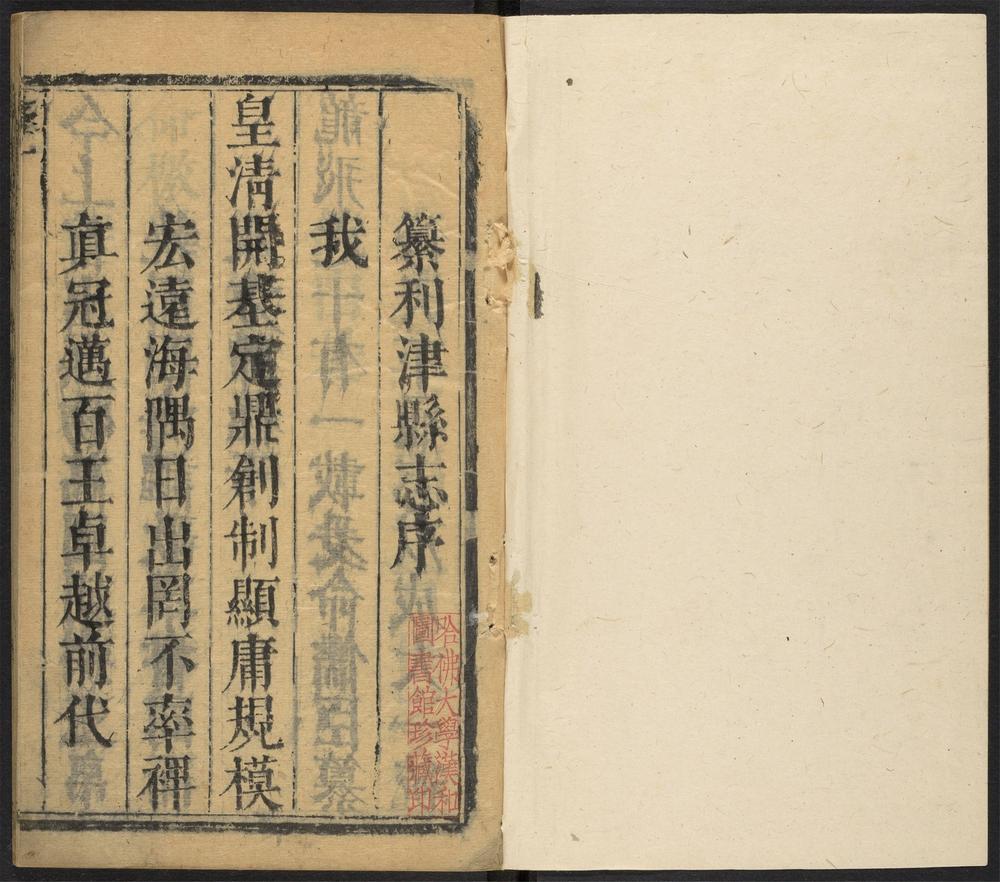 纂利津縣志序
我
皇清開基定鼎創制顯庸規模
宏遠海隅日出罔不率禆
真冠邁百王卓越前代
哈佛大學漢和
圖書館珍藏印